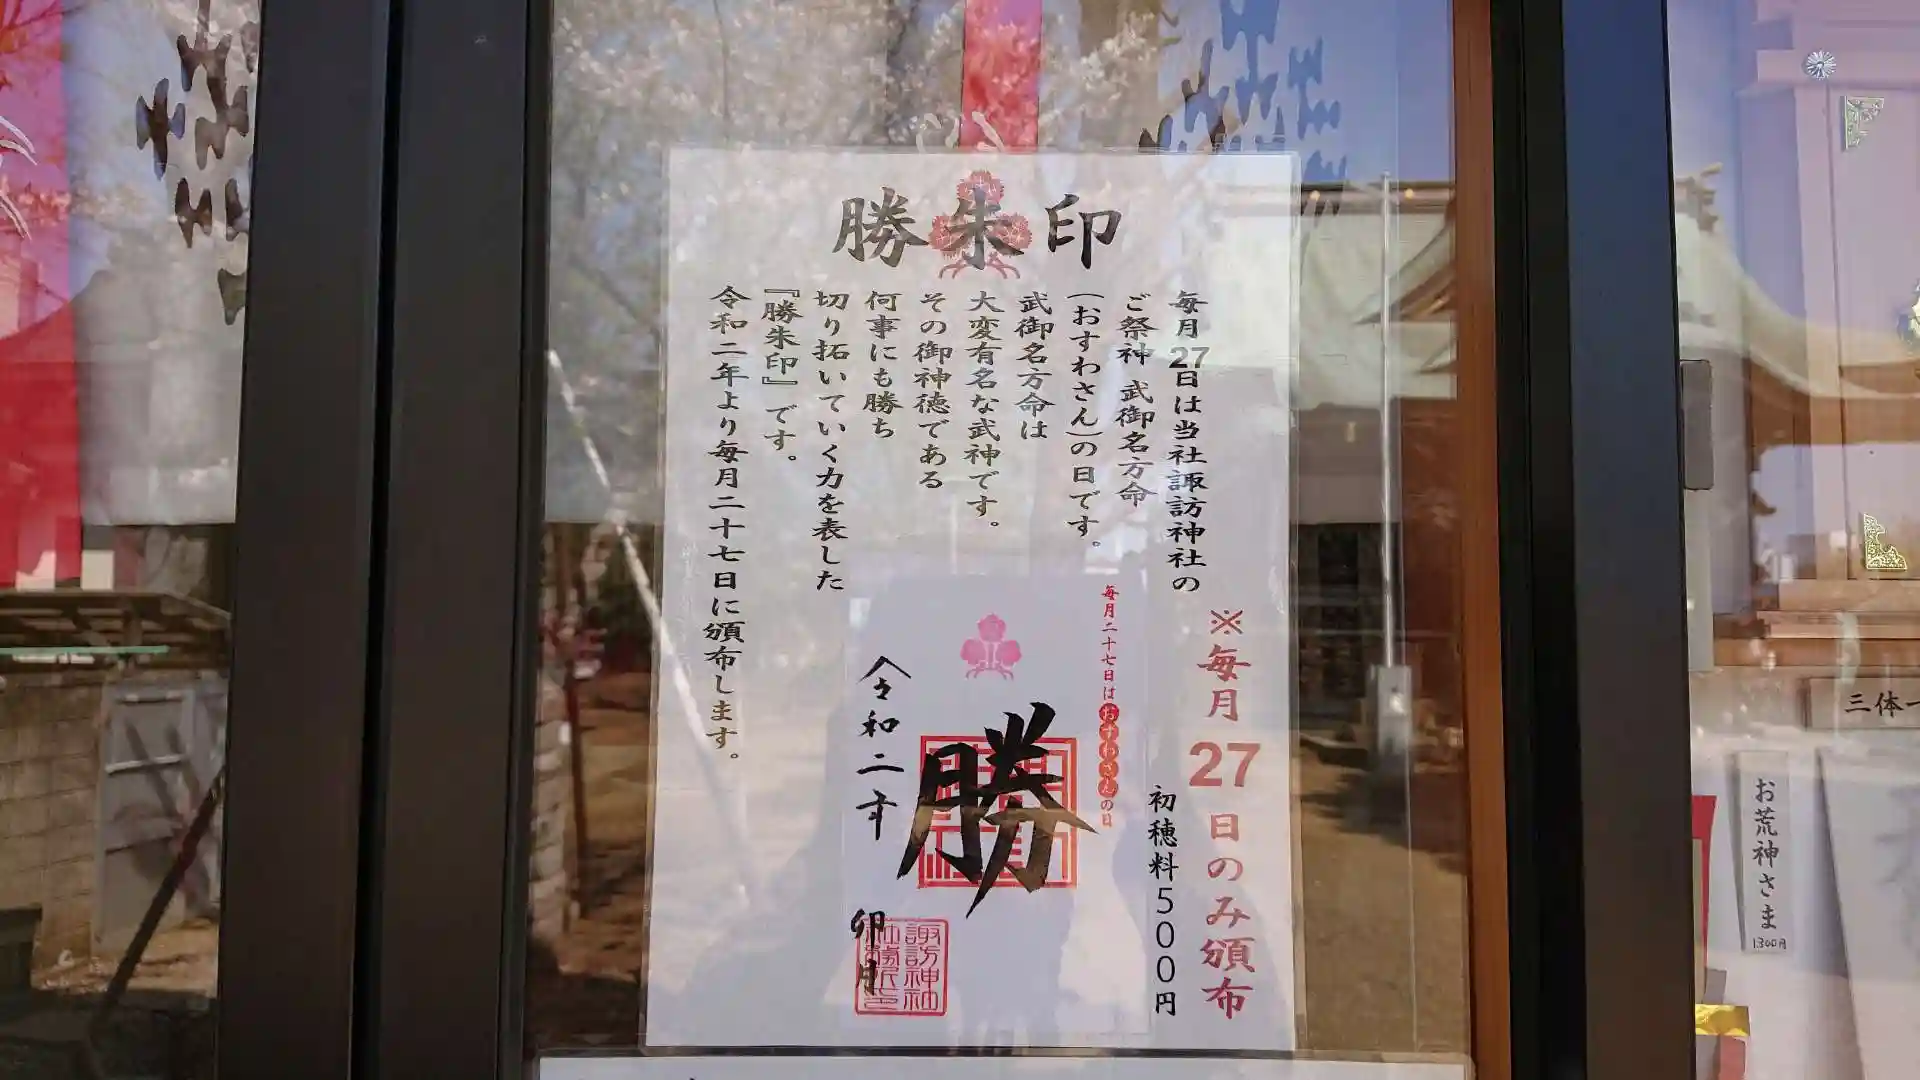 勝朱印
毎月27日は当社諏訪神社の
ご祭神 武御名方命
(おすわさん)の日です。
武御名方命は
大変有名な武神です。
その御神徳である
何事にも勝ち
切り拓いていく力を表した
『勝朱印』です。
令和二年より毎月二十七日に頒布します。
※毎月27日のみ頒布
初穂料500円
毎月二十七日はおすわさんの日
勝
令和二年
卯月
諏訪神社
三体一
お荒神さま
1300円